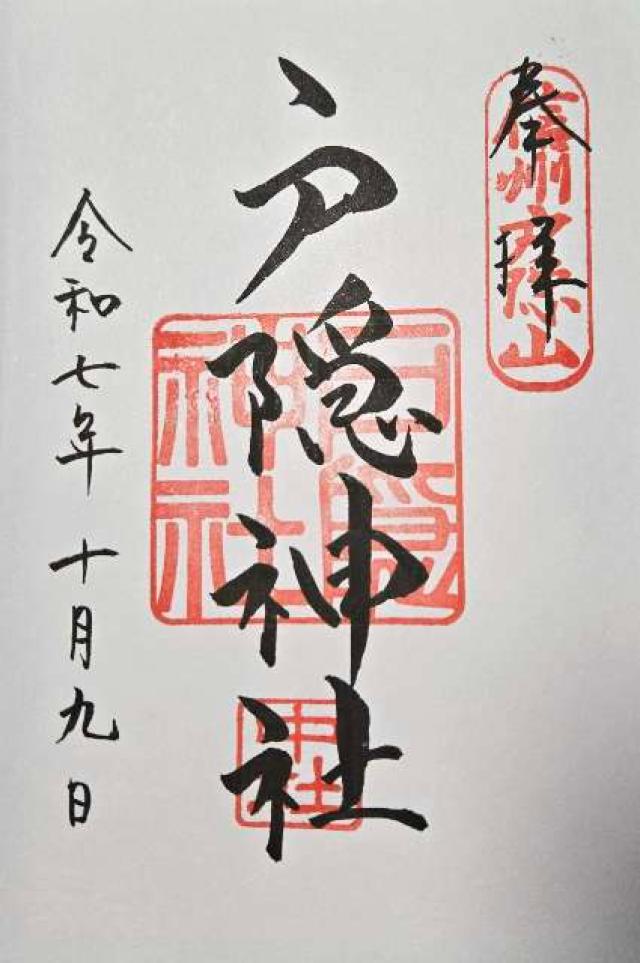 奉拝
信州戸隠山
戸隠神社
戸隠神社
中社
令和七年十月九日